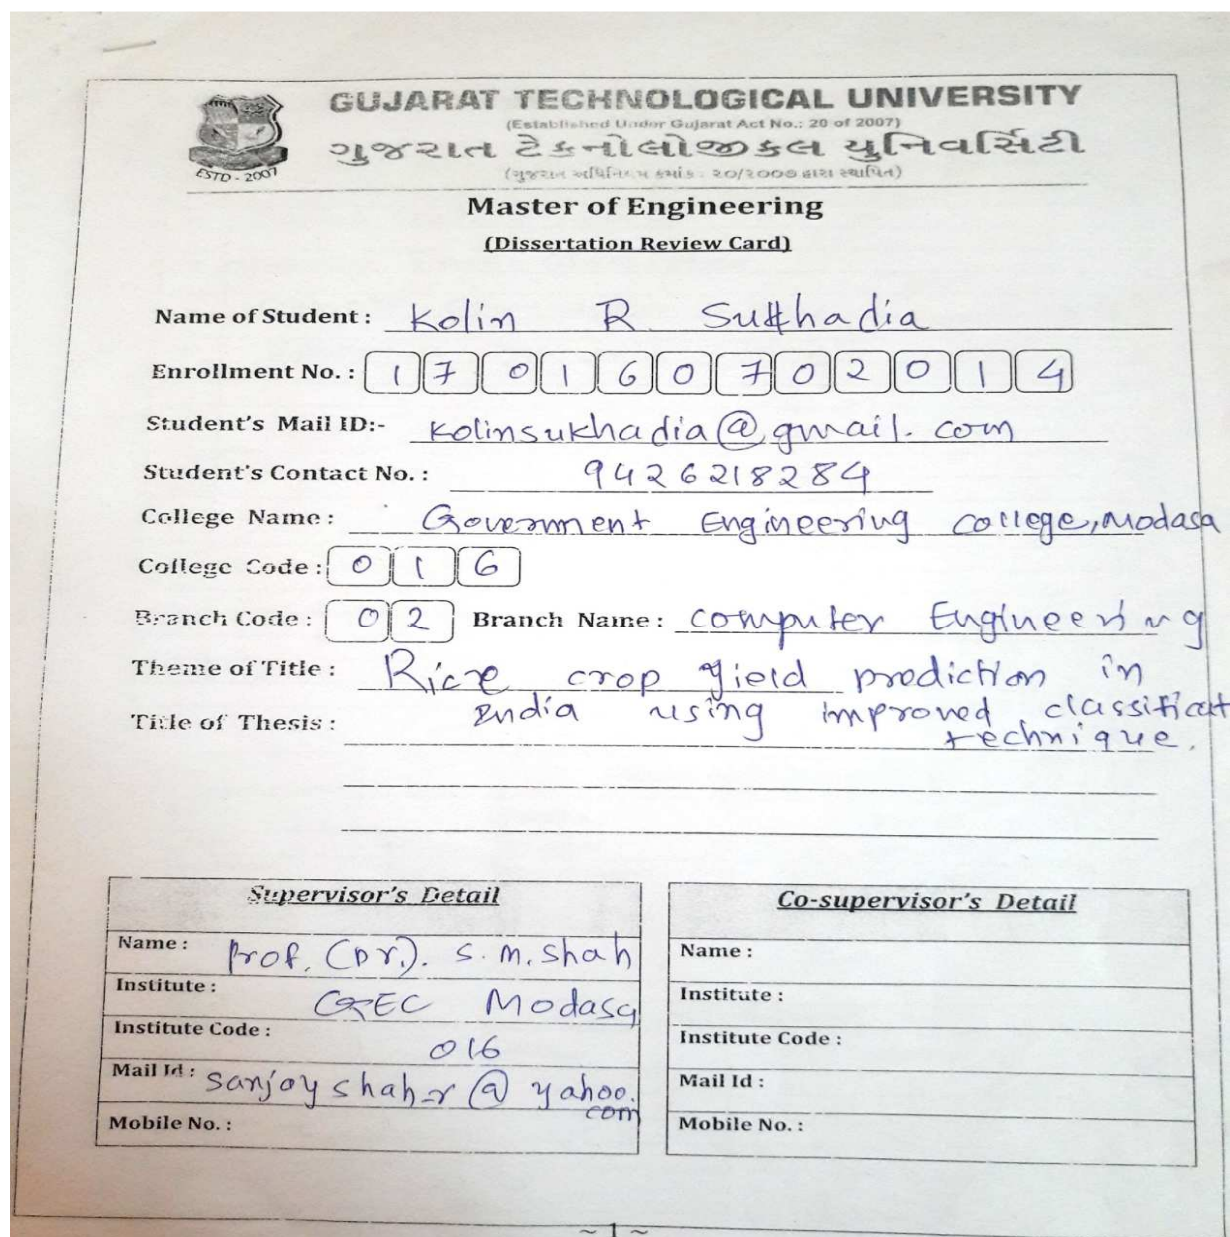 GUJARAT TECHNOLOGICAL UNIVERSITY
(Established Under Gujarat Act No.: 20 of 2007)
ગુજરાત ટેકનોલોજીકલ યુનિવર્સિટી
(ગુજરાત અધિનિયમ ક્રમાંક : ૨૦/૨૦૦૭ દ્વારા સ્થાપિત)
ESTD - 2007
Master of Engineering
(Dissertation Review Card)
Name of Student : Kolin R Sukhadia
Enrollment No. : 170160702014
Student's Mail ID:- kolinsukhadia@gmail.com
Student's Contact No. : 9426218284
College Name : Goverment Engineering college, Modasa
College Code : 016
Branch Code : 02 Branch Name : computer Engineering
Theme of Title : Rice crop yield prediction in
Title of Thesis : India using improved classificat
technique.
Supervisor's Detail
Name : Prof. (Dr.). S. M. Shah
Institute : GEC Modasa
Institute Code : 016
Mail Id : sanjayshah_r@yahoo.
com
Mobile No. :
Co-supervisor's Detail
Name :
Institute :
Institute Code :
Mail Id :
Mobile No. :
~ 1 ~